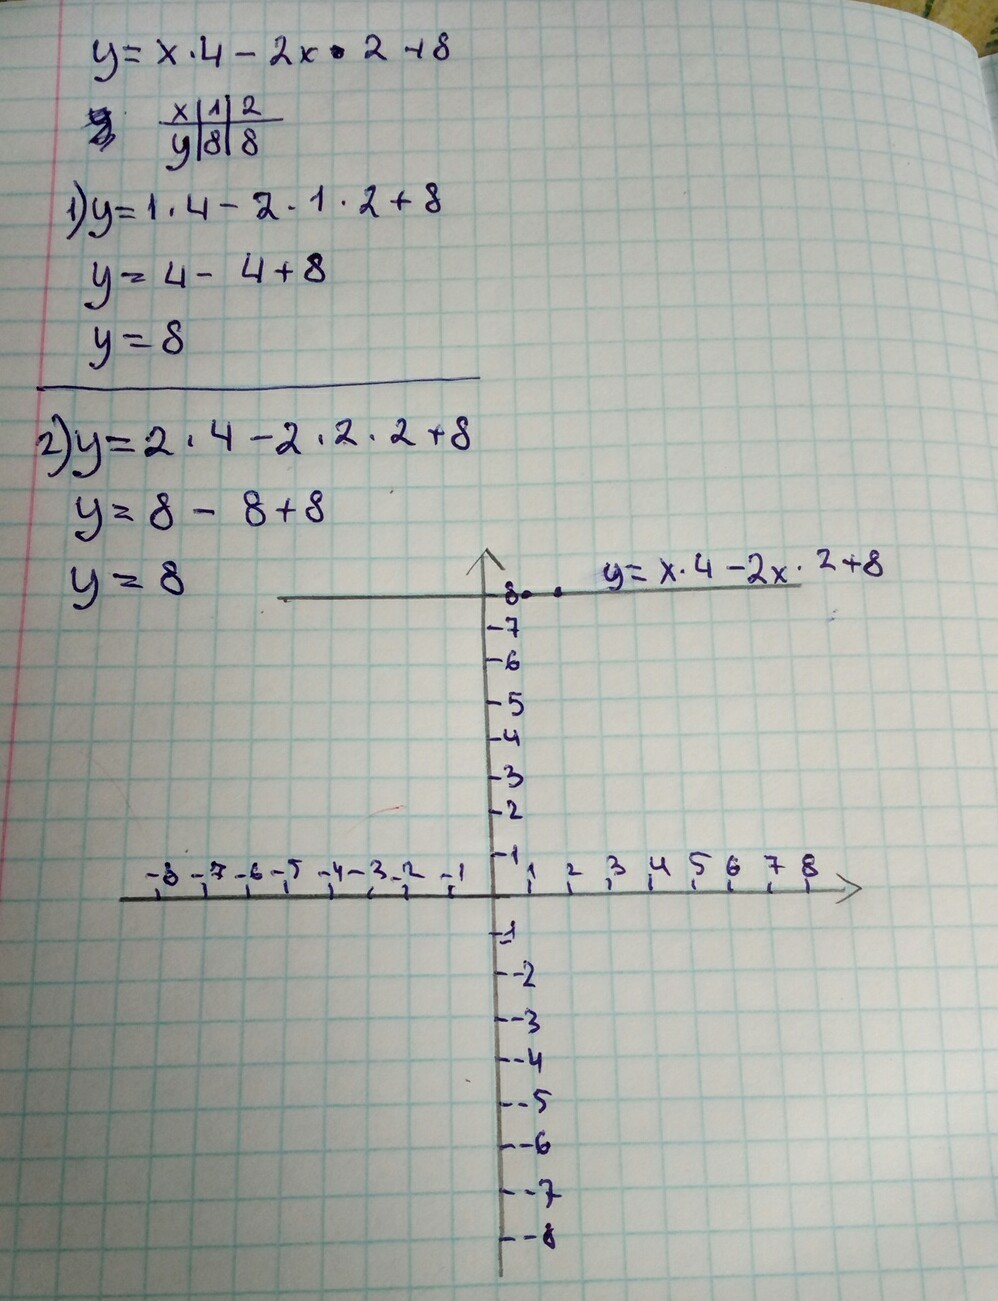 y = x · 4 - 2x · 2 + 8
x | 1 | 2
y | 8 | 8
1) y = 1 · 4 - 2 · 1 · 2 + 8
y = 4 - 4 + 8
y = 8
2) y = 2 · 4 - 2 · 2 · 2 + 8
y = 8 - 8 + 8
y = 8
y = x · 4 - 2x · 2 + 8
8
7
6
5
4
3
2
1
-8 -7 -6 -5 -4 -3 -2 -1 1 2 3 4 5 6 7 8
-1
-2
-3
-4
-5
-6
-7
-8